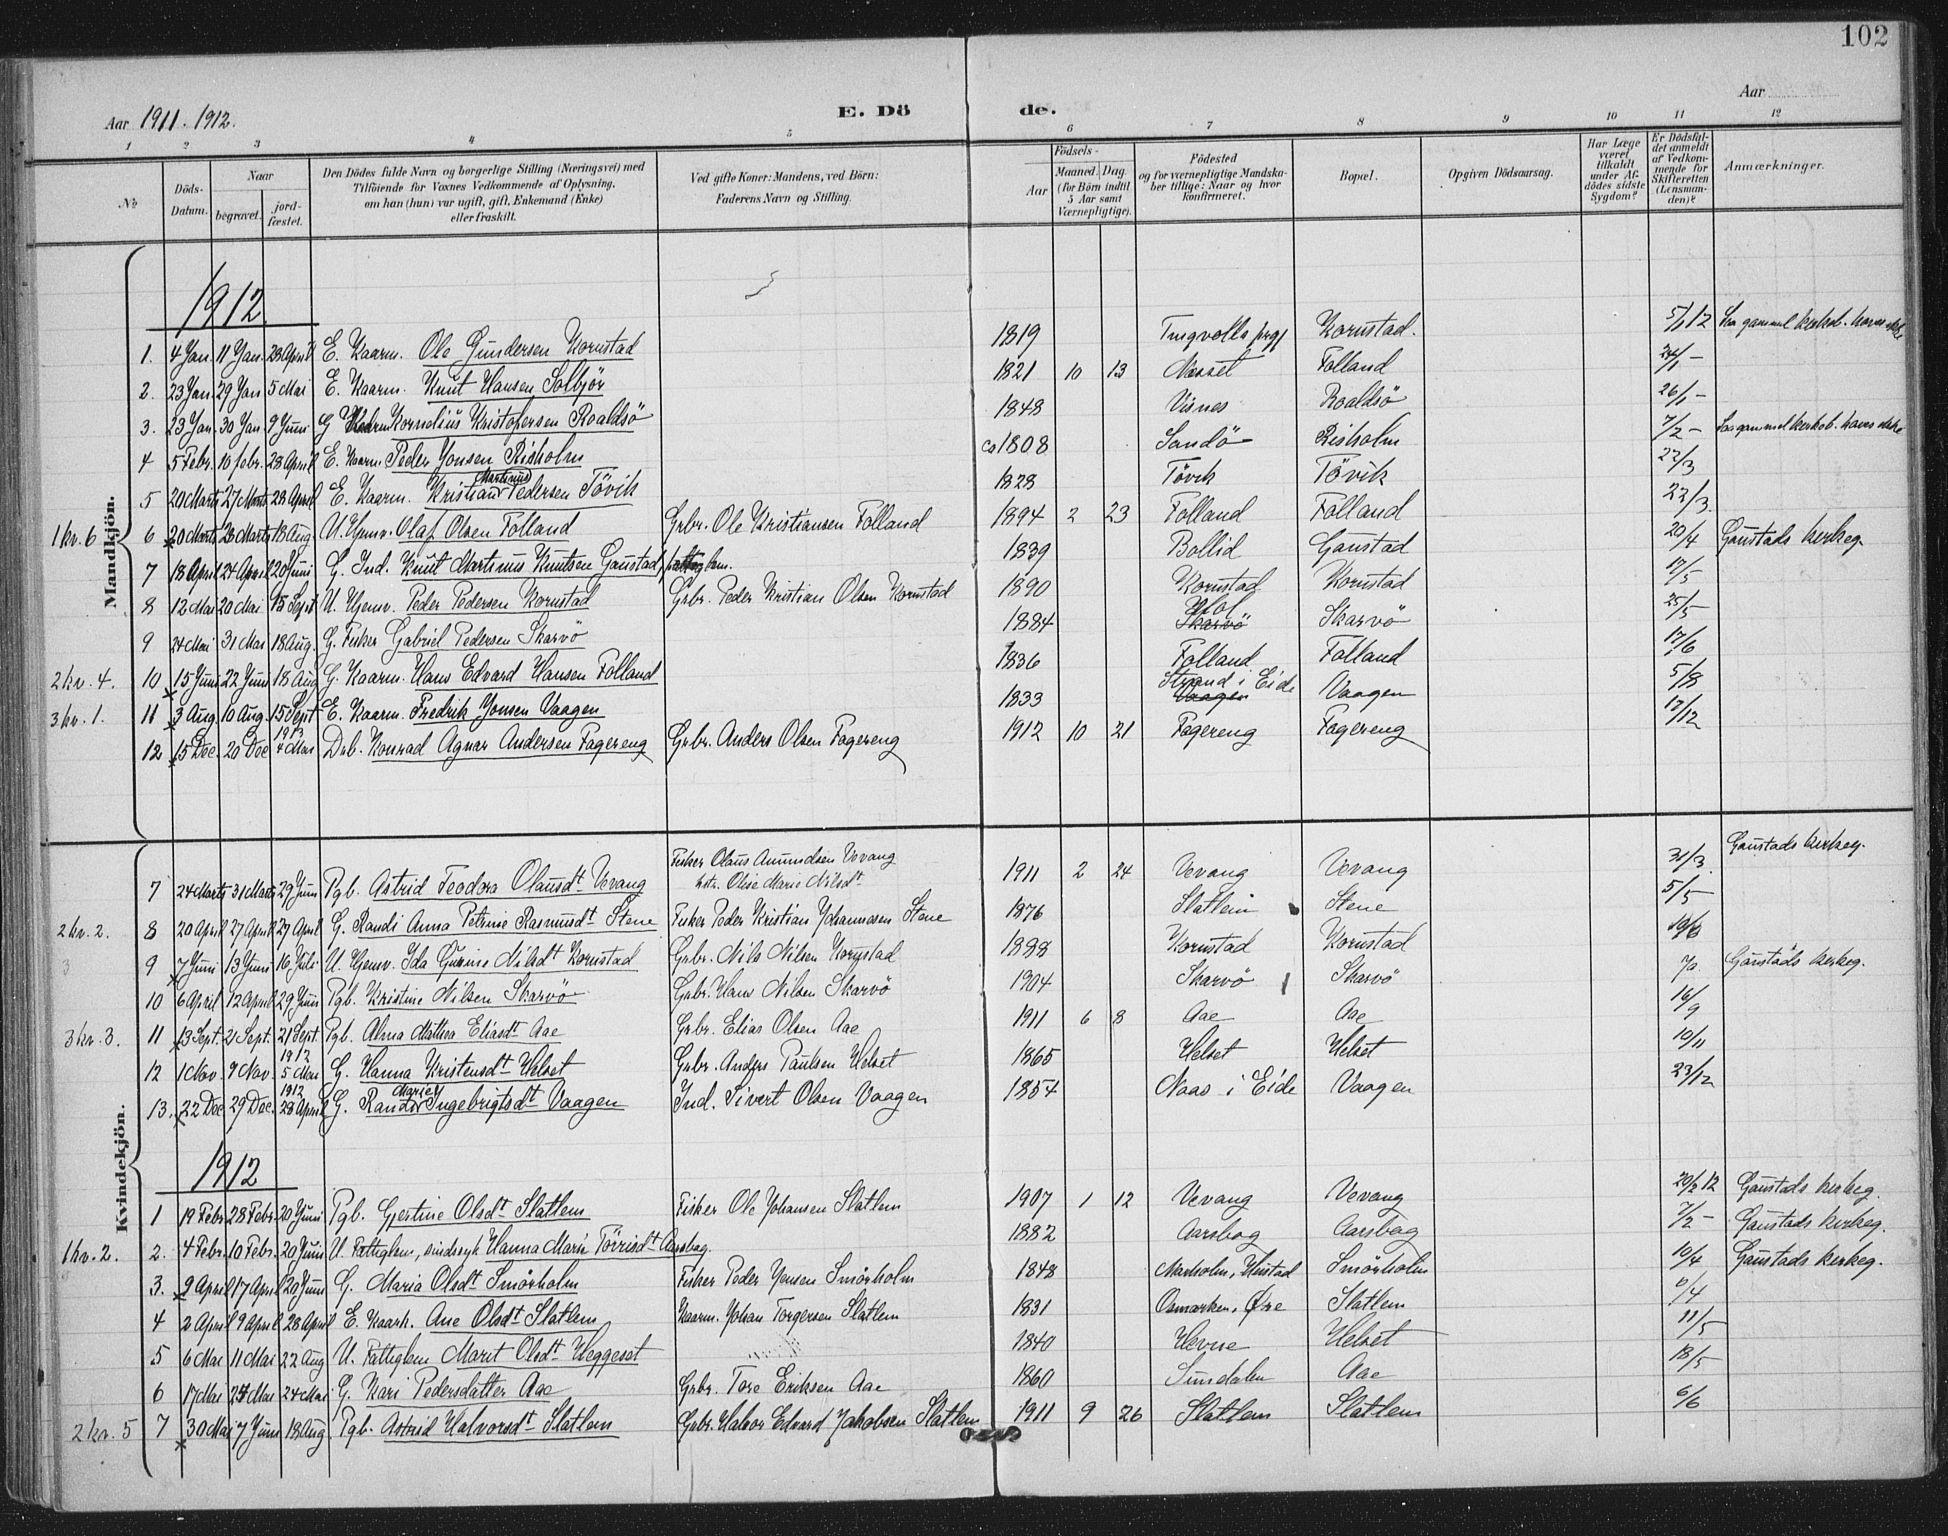 102
Aar 1911-1912. E. Dö de. Aar
1 2 3 4 5 6 7 8 9 10 11 12
№ Döds-Datum. Naar begravet. jordfæstet. Den Dödes fulde Navn og borgerlige Stilling (Næringsvei) med Tilföiende for Voxnes Vedkommende af Oplysning, om han (hun) var ugift, gift, Enkemand (Enke) eller fraskilt. Ved gifte Koner: Mandens, ved Börn: Faderens Navn og Stilling. Födsels- Aar Maaned. Dag. (for Börn indtil 5 Aar samt Værnepligtige). Födested og for værnepligtige Mandskaber tillige: Naar og hvor konfirmeret. Bopæl. Opgiven Dödsaarsag. Har Læge været tilkaldt under Afdödes sidste Sygdom? Er Dödsfaldet anmeldt af Vedkommende for Skifteretten (Lensmanden)? Anmærkninger.
Mandkjön.
1912
1. 4 Jan. 11 Jan. 28 April E. Kaarm. Ole Gundersen Kornstad 1819 Tingvolls prgj Kornstad. 5/1 12
2. 23 Jan. 29 Jan 5 Mai E. Kaarm. Knut Hansen Solbjör 1821 10 13 Nesset Folland 24/1 -
3. 23 Jan. 30 Jan. 9 Juni G Kornelius Kristofersen Roaldsö 1848 Visnes Roaldsö 26/1 -
4 5 Febr. 10 febr. 28 April E. Kaarm Peder Jonsen Risholm ca 1808 Sandö Risholm 7/2 -
5 20 Marts 27 Marts 28 April E. Kaarm. Kristian Martinus Pedersen Tövik 1828 Tövik Tövik 22/3
1 kv. 6 6 20 Marts 28 Marts 18 Aug. U. Hjemv. Olaf Olsen Folland Grbr. Ole Kristiansen Folland 1894 2 23 Folland Folland 22/3.
7 18 April 24 April 20 Juni G. Ind. Knut Martinus Knutsen Gaustad, fattiglem. 1839 Bollid Gaustad 20/4 Gaustads kirkeg.
8 12 Mai 20 Mai 15 Sept U. Hjemv. Peder Pedersen Kornstad Grbr. Peder Kristian Olsen Kornstad 1890 Kornstad Kornstad 17/5
9 24 Mai 31 Mai 18 Aug. G. Fisker Gabriel Pedersen Skarvö 1884 Skarvö Skarvö 25/5
2 kv. 4. 10 15 Juni 22 Juni 18 Aug G. Kaarm. Hans Edvard Hansen Folland 1836 Folland Folland 17/6
3 kv. 1. 11 3 Aug. 10 Aug. 15 Sept E. Kaarm. Fredrik Jonsen Vaagen 1833 Strand i Eide Vaagen Vaagen 5/8
12 15 Dec. 20 Dec 1913 4 Mai Drb. Konrad Agnar Andersen Fagereng Grbr. Anders Olsen Fagereng 1912 10 21 Fagereng Fagereng 17/12
Kvindekjön.
7 24 Marts 31 Marts 29 Juni Pgb. Astrid Teodora Olausdt Vevang Fisker Olaus Amundsen Vevang hstr. Olise Marie Nilsdt 1911 2 24 Vevang Vevang 31/3. Gaustads kirkeg.
2 kv. 2. 8 20 April 27 April 27 April G. Randi Anna Petrine Rasmusdt Stene Fisker Peder Kristian Johannesen Stene 1876 Slatlem Stene 5/5
3 9 7 Juni 13 Juni 16 Juli U. Hjemv. Ida Gurine Nilsdt Kornstad Grbr. Nils Nilsen Kornstad 1888 Kornstad Kornstad 10/6
10 6 April 12 April 29 Juni Pgb. Kristine Nilsen Skarvö Grbr. Hans Nilsen Skarvö 1904 Skarvö Skarvö Gaustads kirkeg.
3 kv. 3. 11 13 Sept. 21 Sept. 21 Sept. Pgb. Alma Mathea Eliasdt Aae Grbr. Elias Olsen Aae 1911 6 8 Aae Aae 16/9
12 1 Nov. 9 Nov. 1912 5 Mai G. Hanna Kristensdt Helset Grbr. Anders Paulsen Helset 1865 Helset Helset 10/11
13. 22 Dec 29 Dec. 1912 28 April G. Randi Marie Ingebrigtsdt Vaagen Ind. Sivert Olsen Vaagen 1854 Naas i Eide Vaagen 23/12
1912
1 19 Febr. 28 Febr. 20 Juni Pgb. Gjertine Olsdt Slatlem Fisker Ole Johansen Slatlem 1907 1 12 Vevang Vevang 20/2 12 Gaustads kirkeg.
1 kv. 2. 2. 4 Febr. 10 Febr. 20 Juni U. Fattiglem, sindssyk Hanna Marie Törrisdt Aarsbog. 1882 Aarsbog Aarsbog 7/2 - Gaustads kirkeg.
3. 9 April 17 April 20 Juni G. Maria Olsdt Smörholm Fisker Peder Jensen Smörholm 1848 Hustad Smörholm 10/4 Gaustads kirkeg.
4 2 April 9 April 28 April E. Kaark. Ane Olsdt Slatlem Kaarm. Johan Torgersen Slatlem 1831 Osmarken, Öre Slatlem 6/4
5 6 Mai 11 Mai 22 Aug U. Fattiglem Marit Olsdt Heggeset 1840 Hevne Helset 11/5
6 17 Mai 24 Mai 24 Mai G. Kari Pedersdatter Aae Grbr. Tore Eriksen Aae 1860 Sundalen Aae 18/5
2 kv. 5 7 30 Mai 7 Juni 18 Aug Pgb. Astrid Halvorsdt Slatlem Grbr. Halvor Edvard Jakobsen Slatlem 1911 9 26 Slatlem Slatlem 6/6